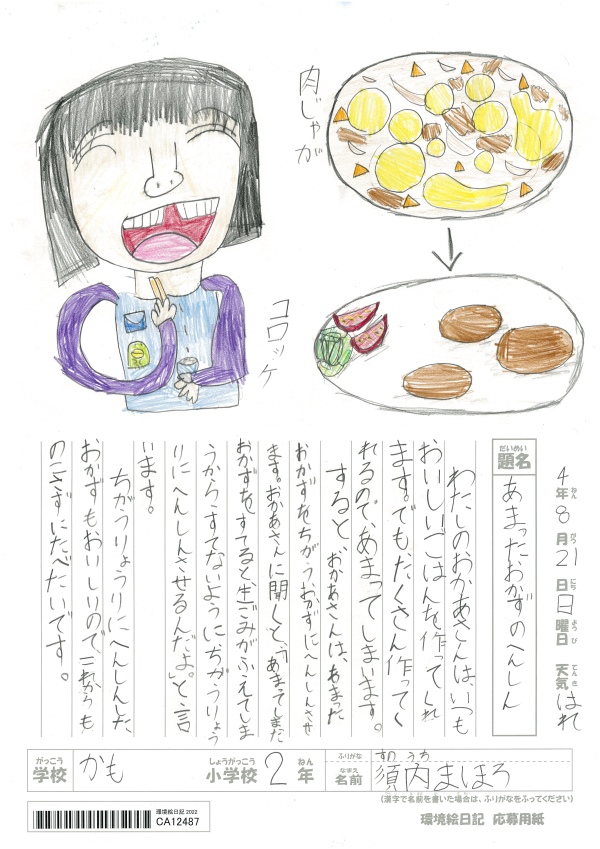 肉じゃが
コロッケ
4年ねん8月がつ21日にち日曜日ようび 天気てんきはれ
だいめい
題名
あまったおかずのへんしん
わたしのおかあさんは、いつも
おいしいごはんを作ってくれ
ます。でも、たくさん作ってく
れるので、あまってしまいます。
すると、おかあさんは、あまった
おかずをちがうおかずにへんしんさせ
ます。おかあさんに聞くと、「あまってしまった
おかずをすてると、生ごみがふえてしま
うから、すてないようにちがうりょう
りにへんしんさせるんだよ。」と、言
います。
ちがうりょうりにへんしんした
おかずもおいしいので、これからも
のこさずにたべたいです。
がっこう
学校
かも
しょうがっこう
小学校
2
ねん
年
ふりがな
すのうち
なまえ
名前
須内まほろ
(漢字で名前を書いた場合は、ふりがなをふってください)
環境絵日記 2022
CA12487
環境絵日記 応募用紙